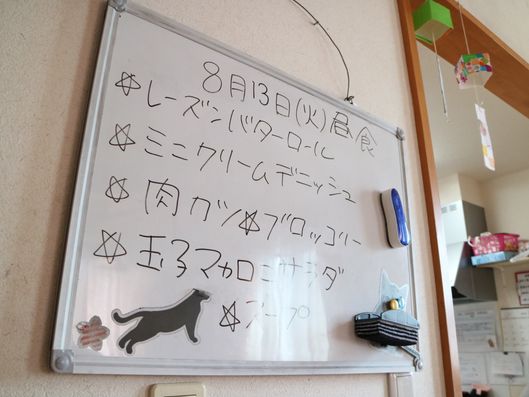 8月13日(火)昼食
☆レーズンバターロール
☆ミニクリームデニッシュ
☆肉ガツ☆ブロッコリー
☆玉子マカロニサラダ
☆スープ